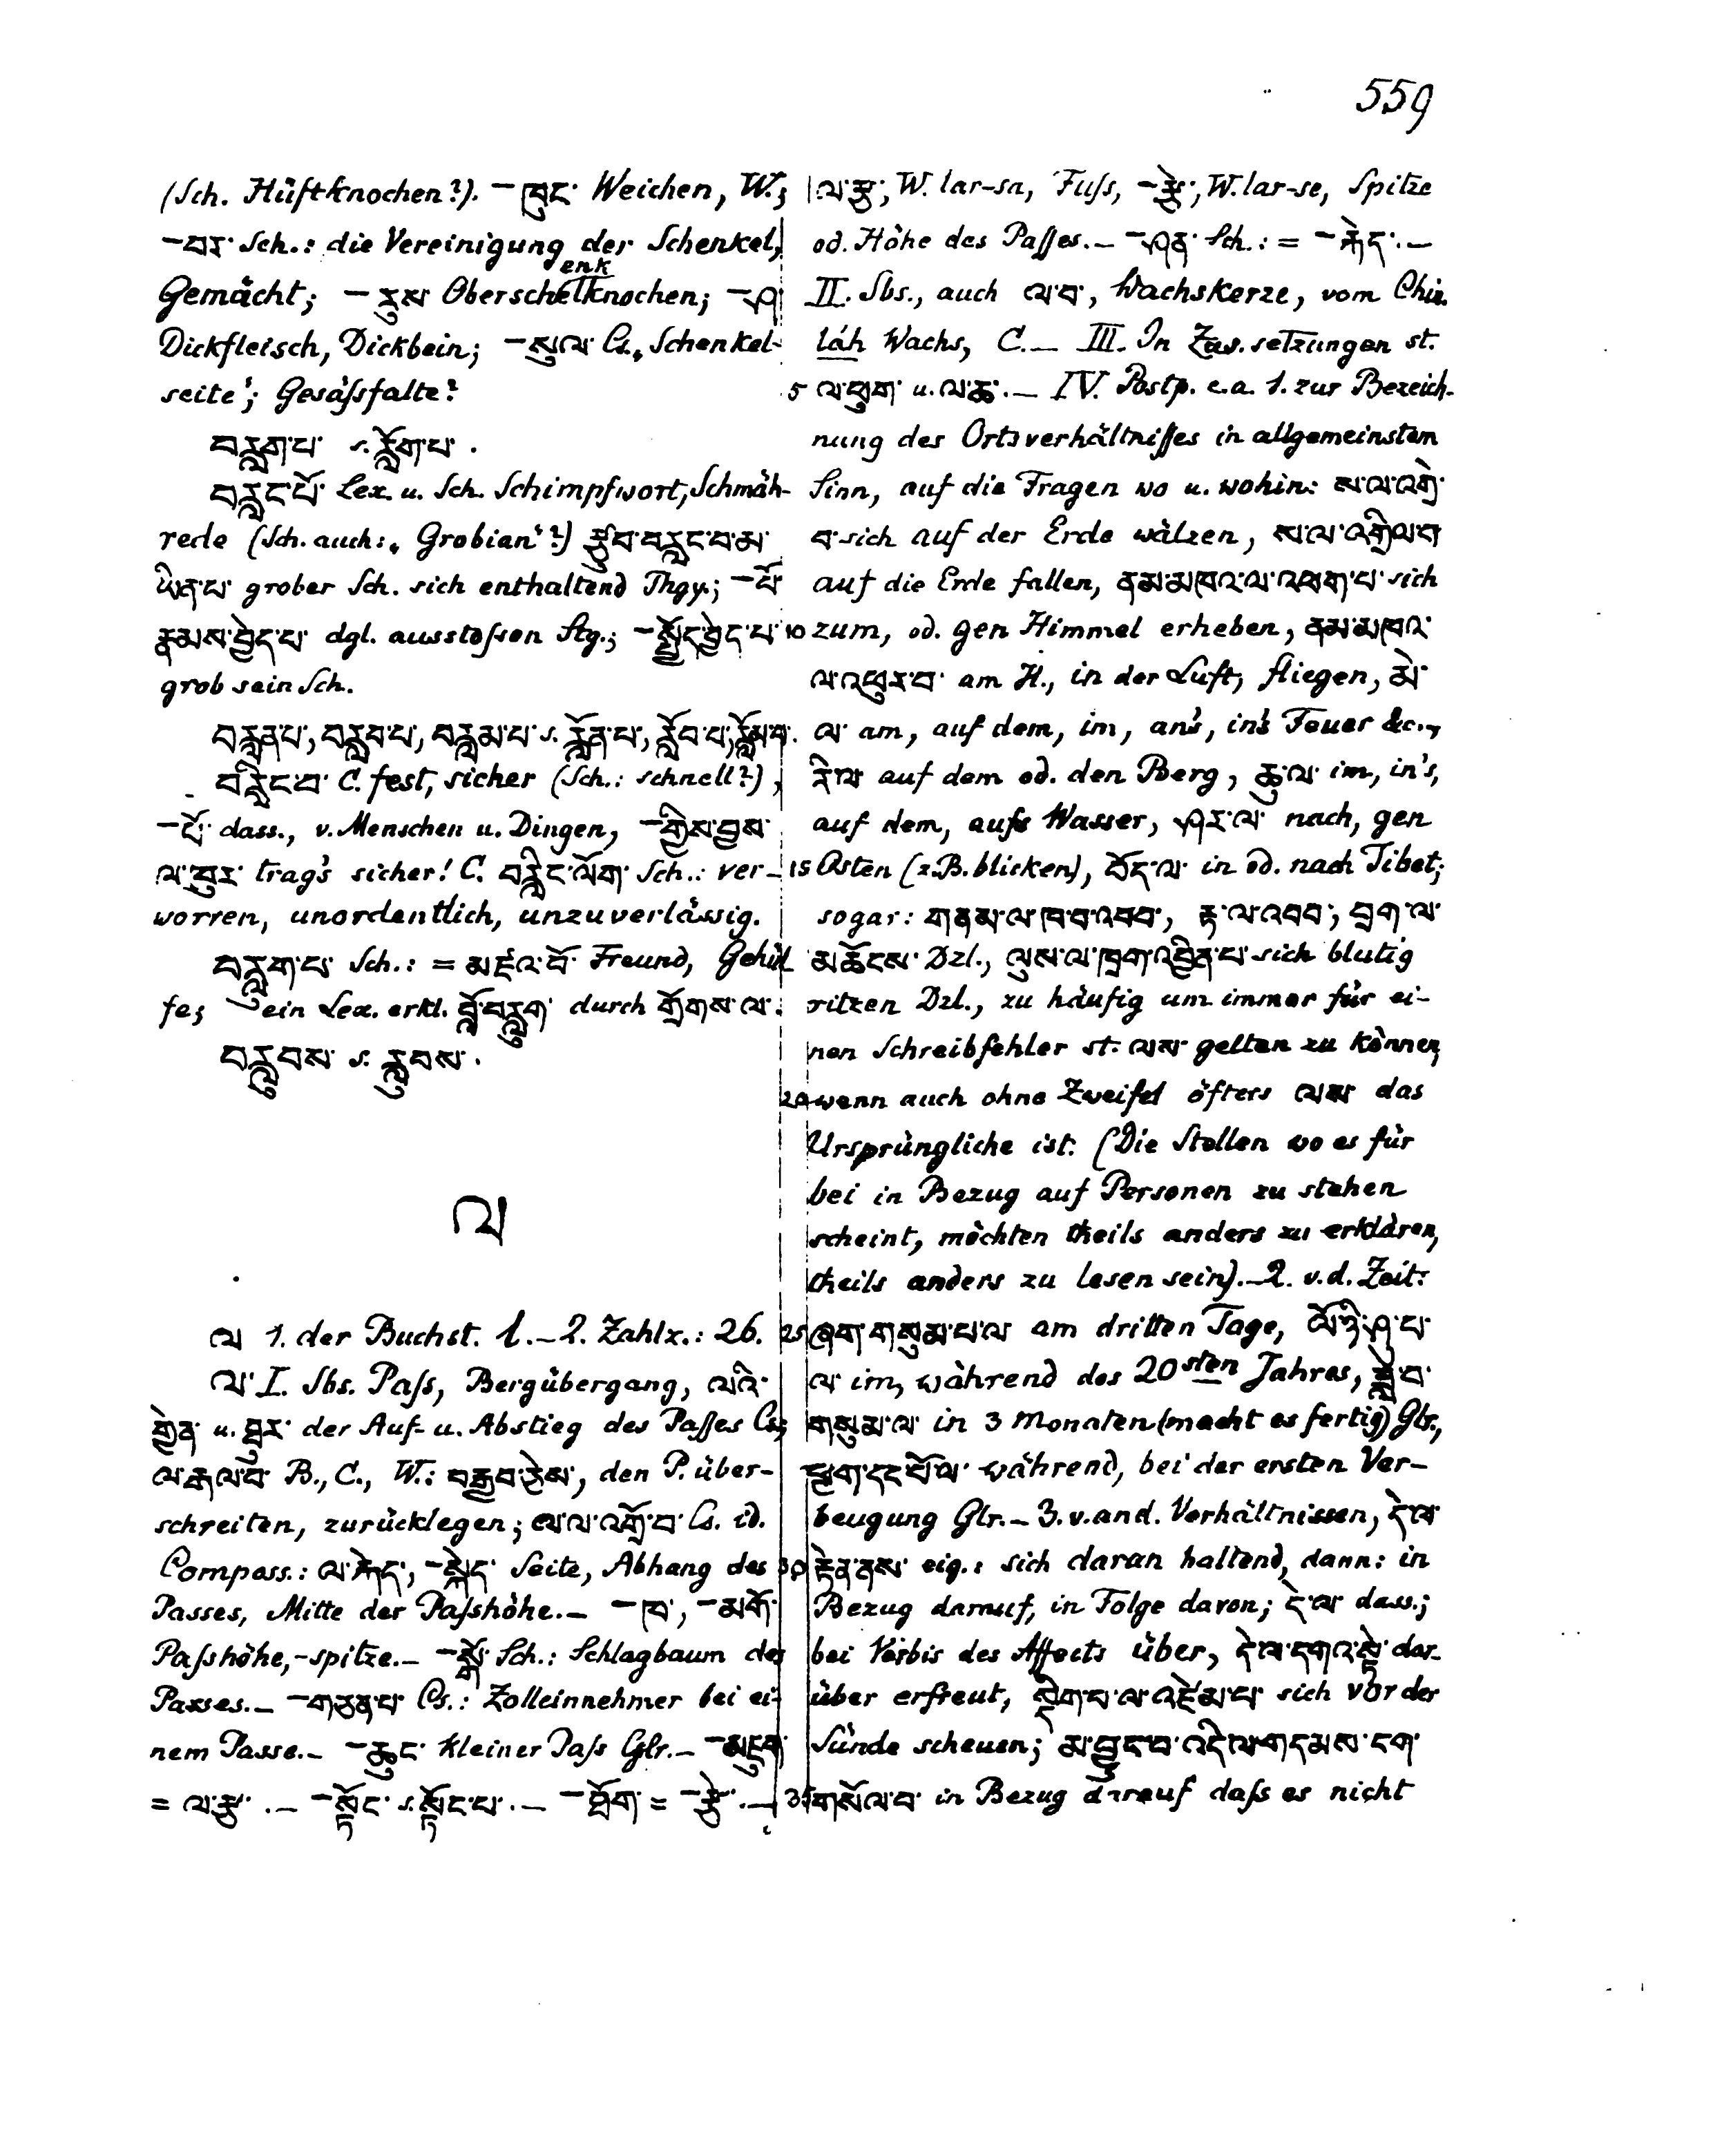 559
(Sch. Hüftknochen?). – ཁུང་ Weichen, W.;
– བར་ Sch.: die Vereinigung der Schenkel,
enk
Gemächt; – རུས་ Oberschelknochen; – ཤ་
Dickfleisch, Dickbein; – སུལ་ Cs. „Schenkel-
seite“; Gesäßfalte?
བརླག་པ་ s. རློག་པ་.
བརླང་པོ་ Lex. u. Sch. Schimpfwort, Schmäh-
rede (Sch. auch: „Grobian“?) རྩུབ་བརླང་བ་མ་
ཡིན་པ་ grober Sch. sich enthaltend Thgy.; – པོ་
རྣམས་བྱེད་པ་ dgl. ausstoßen Stg.; – སྤྱོད་བྱེད་པ་
grob sein Sch.
བརླན་པ་, བརླབ་པ་, བརླམ་པ་ s. རློན་པ་, རློབ་པ་, རློམ་པ་.
བརླིང་བ་ C. fest, sicher (Sch.: schnell?),
– པོ་ dass., v. Menschen u. Dingen, – གྱིས་བྱས་
ལ་བུར་ trag's sicher! C. བརླིང་ལོག་ Sch.: ver-
worren, unordentlich, unzuverlässig.
བརླག་པ་ Sch.: = མཛའ་བོ་ Freund, Gehül
fe; ein Lex. erkl. བློ་བརླུག་ durch གྲོགས་ལ་.
བརླུབས་ s. རླུབས་.
ལ
ལ 1. der Buchst. l. – 2. Zahlz.: 26.
ལ་ I. Sbs. Paß, Bergübergang, ལའི་
གྱེན་ u. ཐུར་ der Auf- u. Abstieg des Passes Cs.;
ལ་རྒལ་བ་ B., C., W.: བརྒྱབ་ཅེས་, den P. über-
schreiten, zurücklegen; ལ་ལ་འགྲོ་བ་ Cs. id.
Compass.: ལ་རྐེད་, – སྐེད་ Seite, Abhang des
Passes, Mitte der Paßhöhe. – – ཁ་, – མགོ་
Paßhöhe, -spitze. – – སྒོ་ Sch.: Schlagbaum des
Passes. – – གཅན་པ་ Cs.: Zolleinnehmer bei ei-
nem Passe. – – ཆུང་ kleiner Paß Glr. – – མདུག་
= ལ་རྩ་. – – སྟོང་ s. སྟོང་པ་. – – ཐོག་ = – རྩེ་. –
ལ་རྩ་, W. lar-sa, Fuß, – རྩེ་, W. lar-se, Spitze
od. Höhe des Passes. – – ཤན་ Sch.: = – རྐེད་. –
II. Sbs., auch ལ་བ་, Wachskerze, vom Chin.
láh Wachs, C. – III. In Zus.setzungen st.
5 ལ་ཕུག་ u. ལ་ཆ་. – IV. Postp. c. a. 1. zur Bezeich-
nung des Ortsverhältnisses in allgemeinstem
Sinn, auf die Fragen wo u. wohin: ས་ལ་འགྲེ་
བ་ sich auf der Erde wälzen, ས་ལ་འགྱེལ་བ
auf die Erde fallen, ནམ་མཁའ་ལ་འཕག་པ་ sich
10 zum, od. gen Himmel erheben, ནམ་མཁའ་
ལ་འཕུར་བ་ am H., in der Luft, fliegen, མེ་
ལ་ am, auf dem, im, an's, in's Feuer &c.,
རི་ལ་ auf dem od. den Berg, ཆུ་ལ་ im, in's,
auf dem, aufs Wasser, ཤར་ལ་ nach, gen
15 Osten (z.B. blicken), བོད་ལ་ in od. nach Tibet;
sogar: གནམ་ལ་ཁ་བ་འབབ་, རྟ་ལ་འབབ་, བྲག་ལ་
མཆོངས་ Dzl., ལུས་ལ་ཁྲག་འབྱིན་པ་ sich blutig
ritzen Dzl., zu häufig um immer für ei-
nen Schreibfehler st. ལས་ gelten zu können,
20 wenn auch ohne Zweifel öfters ལས་ das
Ursprüngliche ist. (Die Stellen wo es für
bei in Bezug auf Personen zu stehen
scheint, möchten theils anders zu erklären,
theils anders zu lesen sein). – 2. v. d. Zeit:
25 ཞག་གསུམ་པ་ལ་ am dritten Tage, ལོ་ཉི་ཤུ་པ་
ལ་ im, während des 20sten Jahres, ཟླ་བ་
གསུམ་ལ་ in 3 Monaten (macht es fertig) Glr.,
ཕྱག་དང་པོ་ལ་ während, bei der ersten Ver-
beugung Glr. – 3. v. and. Verhältnissen, དེ་ལ་
30 རྟེན་ནས་ eig.: sich daran haltend, dann: in
Bezug darauf, in Folge davon; དེ་ལ་ dass.;
bei Verbis des Affects über, དེ་ལ་དགའ་སྟེ་ dar-
über erfreut, སྡིག་པ་ལ་འཛེམ་པ་ sich vor der
Sünde scheuen; མ་བྱུང་བ་འདི་ལ་གདམས་ངག་
35 གསོལ་བ་ in Bezug darauf daß es nicht